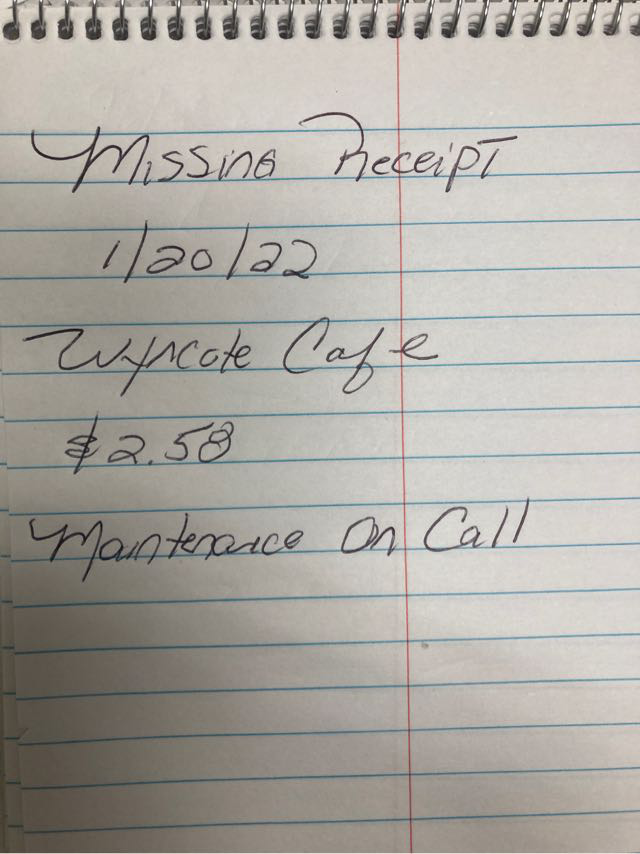 Missing Receipt
1/20/22
Wyncote Cafe
$2.58
Maintenance On Call